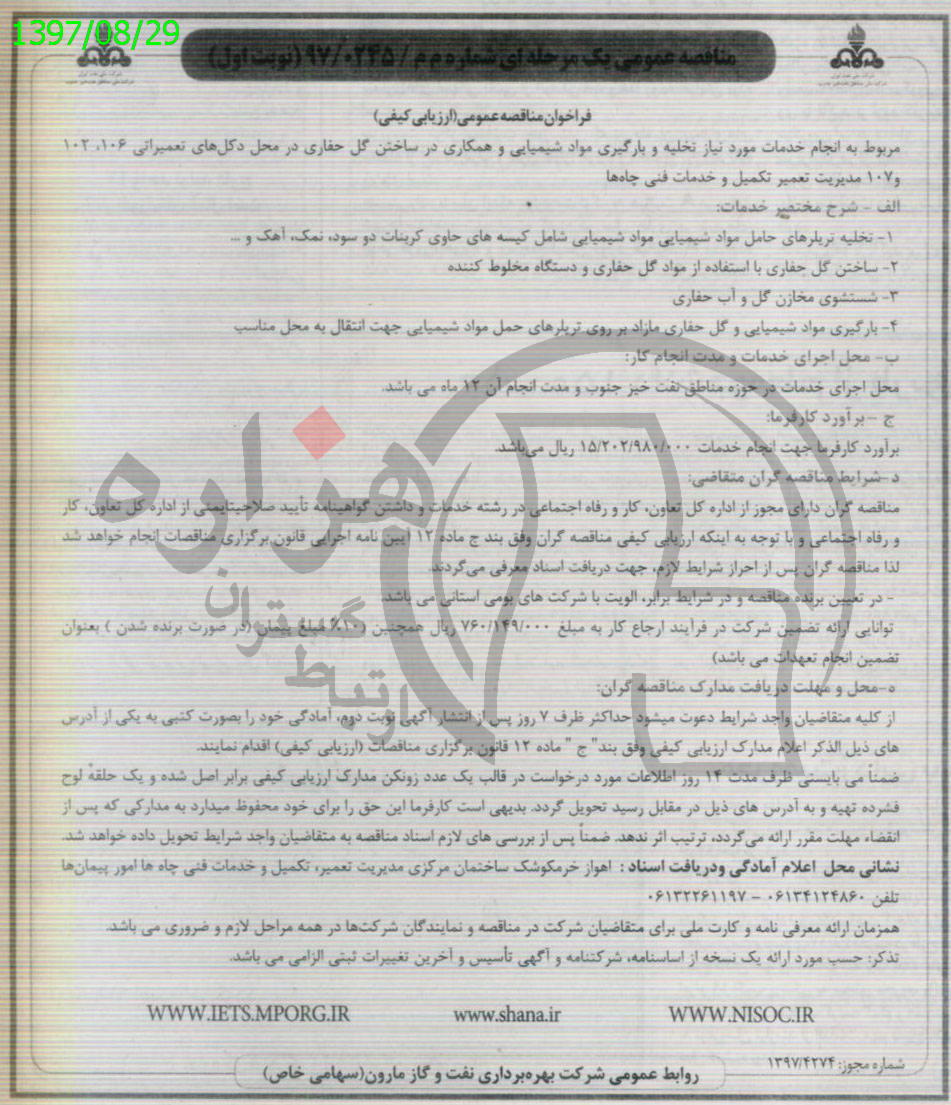 1397/08/29
مناقصه عمومی یک مرحله ای شماره م م / ۹۷/۰۲۴۵ (نوبت اول)
فراخوان مناقصه عمومی(ارزیابی کیفی)
مربوط به انجام خدمات مورد نیاز تخلیه و بارگیری مواد شیمیایی و همکاری در ساختن گل حفاری در محل دکل‌های تعمیراتی ۱۰۶، ۱۰۲
و۱۰۷ مدیریت تعمیر تکمیل و خدمات فنی چاه‌ها
الف - شرح مختصر خدمات:
۱- تخلیه تریلرهای حامل مواد شیمیایی مواد شیمیایی شامل کیسه های حاوی کربنات دو سود، نمک، آهک و ...
۲- ساختن گل حفاری با استفاده از مواد گل حفاری و دستگاه مخلوط کننده
۳- شستشوی مخازن گل و آب حفاری
۴- بارگیری مواد شیمیایی و گل حفاری مازاد بر روی تریلرهای حمل مواد شیمیایی جهت انتقال به محل مناسب
ب- محل اجرای خدمات و مدت انجام کار:
محل اجرای خدمات در حوزه مناطق نفت خیز جنوب و مدت انجام آن ۱۲ ماه می باشد.
ج - بر آورد کارفرما:
برآورد کارفرما جهت انجام خدمات ۱۵/۲۰۲/۹۸۰/۰۰۰ ریال می‌باشد.
د -شرایط مناقصه گران متقاضی:
مناقصه گران دارای مجوز از اداره کل تعاون، کار و رفاه اجتماعی در رشته خدمات و داشتن گواهینامه تأیید صلاحیتایمنی از اداره کل تعاون، کار
و رفاه اجتماعی و با توجه به اینکه ارزیابی کیفی مناقصه گران وفق بند ج ماده ۱۲ آیین نامه اجرایی قانون برگزاری مناقصات انجام خواهد شد
لذا مناقصه گران پس از احراز شرایط لازم، جهت دریافت اسناد معرفی می‌گردند.
- در تعیین برنده مناقصه و در شرایط برابر، الویت با شرکت های بومی استانی می باشد.
توانایی ارائه تضمین شرکت در فرآیند ارجاع کار به مبلغ ۷۶۰/۱۴۹/۰۰۰ ریال همچنین (۱۰٪ مبلغ پیمان (در صورت برنده شدن ) بعنوان
تضمین انجام تعهدات می باشد)
ه-محل و مهلت دریافت مدارک مناقصه گران:
از کلیه متقاضیان واجد شرایط دعوت میشود حداکثر ظرف ۷ روز پس از انتشار آگهی نوبت دوم، آمادگی خود را بصورت کتبی به یکی از آدرس
های ذیل الذکر اعلام مدارک ارزیابی کیفی وفق بند" ج " ماده ۱۲ قانون برگزاری مناقصات (ارزیابی کیفی) اقدام نمایند.
ضمناً می بایستی ظرف مدت ۱۴ روز اطلاعات مورد درخواست در قالب یک عدد زونکن مدارک ارزیابی کیفی برابر اصل شده و یک حلقه لوح
فشرده تهیه و به آدرس های ذیل در مقابل رسید تحویل گردد. بدیهی است کارفرما این حق را برای خود محفوظ میدارد به مدارکی که پس از
انقضاء مهلت مقرر ارائه می‌گردد، ترتیب اثر ندهد. ضمناً پس از بررسی های لازم اسناد مناقصه به متقاضیان واجد شرایط تحویل داده خواهد شد.
نشانی محل اعلام آمادگی ودریافت اسناد : اهواز خرمکوشک ساختمان مرکزی مدیریت تعمیر، تکمیل و خدمات فنی چاه ها امور پیمان‌ها
تلفن ۰۶۱۳۴۱۲۴۸۶۰ - ۰۶۱۳۲۲۶۱۱۹۷
همزمان ارائه معرفی نامه و کارت ملی برای متقاضیان شرکت در مناقصه و نمایندگان شرکت‌ها در همه مراحل لازم و ضروری می باشد.
تذکر: حسب مورد ارائه یک نسخه از اساسنامه، شرکتنامه و آگهی تأسیس و آخرین تغییرات ثبتی الزامی می باشد.
WWW.IETS.MPORG.IR www.shana.ir WWW.NISOC.IR
شماره مجوز: ۱۳۹۷/۴۲۷۴
روابط عمومی شرکت بهره‌برداری نفت و گاز مارون(سهامی خاص)
هزاره
ارتباط گستران